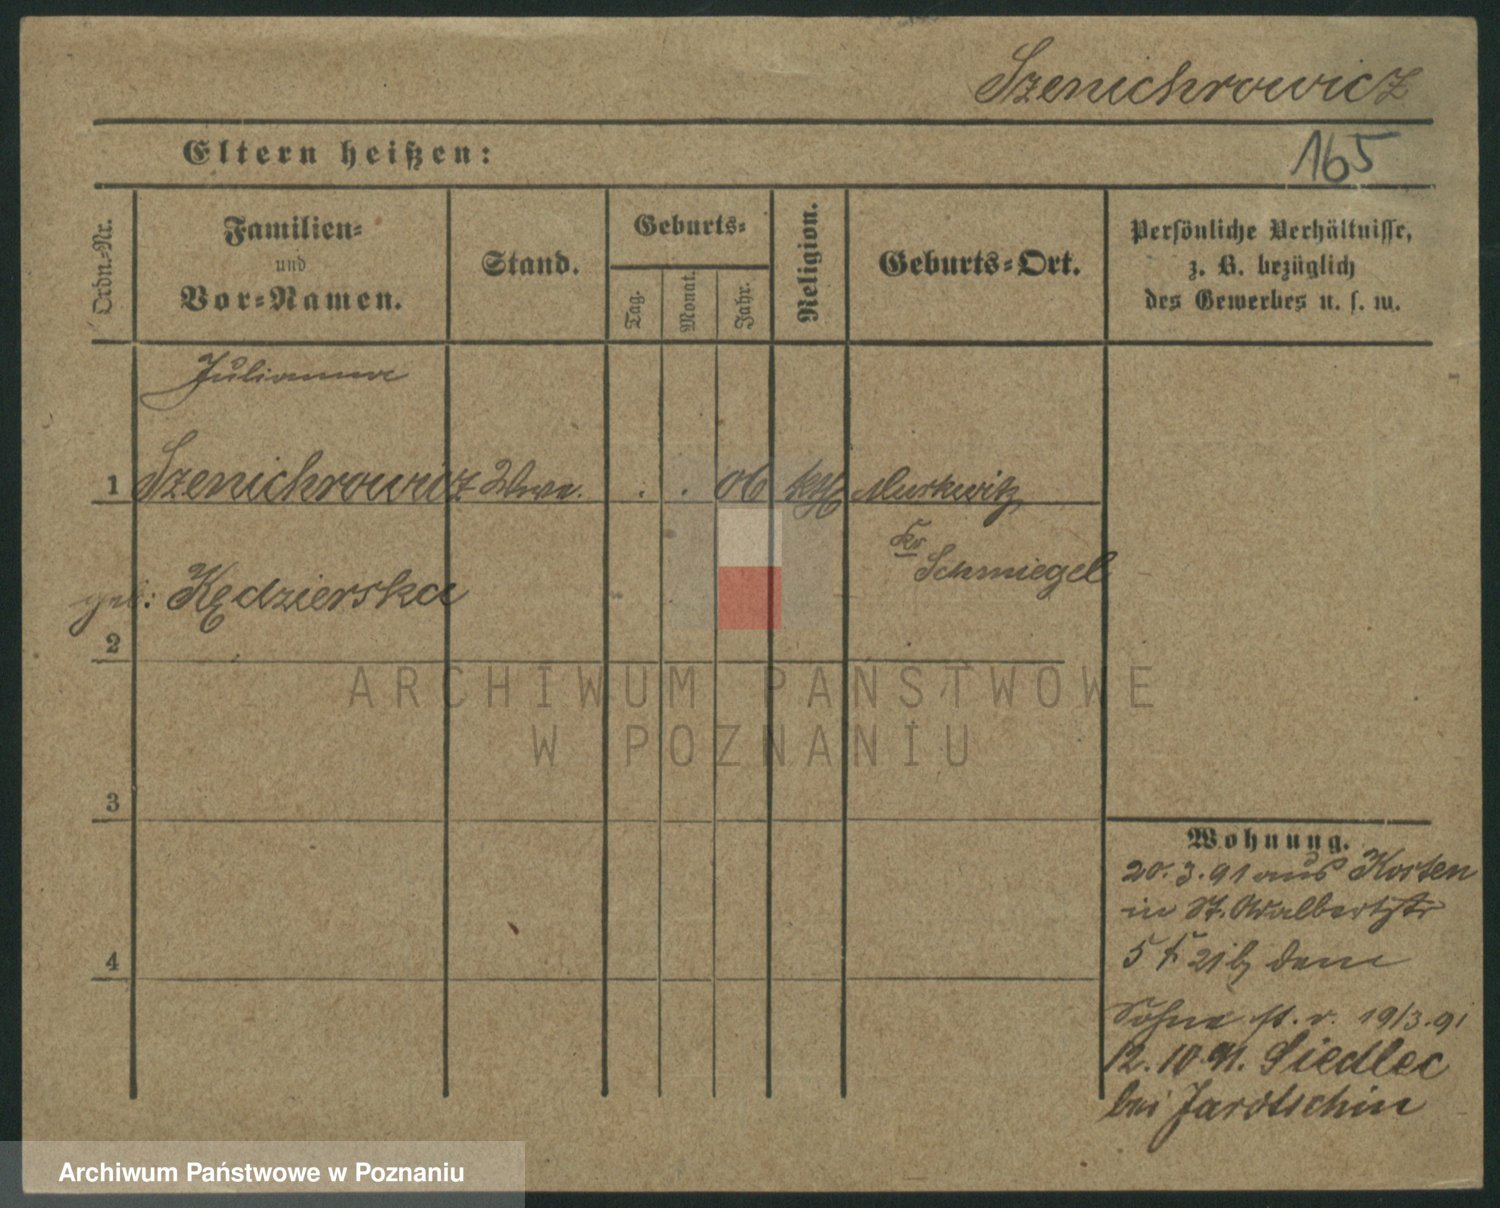 Szenichrowicz
Eltern heißen:
165
Ordn.-Nr.
Familien-
und
Vor-Namen.
Stand.
Geburts-
Tag.
Monat.
Jahr.
Religion.
Geburts-Ort.
Persönliche Verhältnisse,
z. B. bezüglich
des Gewerbes u. s. w.
Julianna
1 Szenichrowicz Wwe. . . 06 kth Murkwitz
Kr
Schmiegel
geb: Kędzierska
2
ARCHIWUM PAŃSTWOWE
W POZNANIU
3
Wohnung.
20.3.91 aus Kosten
in St. Adalbertstr
5 b dem
4
Sohne 19/3.91
12.10.91. Siedlec
bei Jarotschin
Archiwum Państwowe w Poznaniu